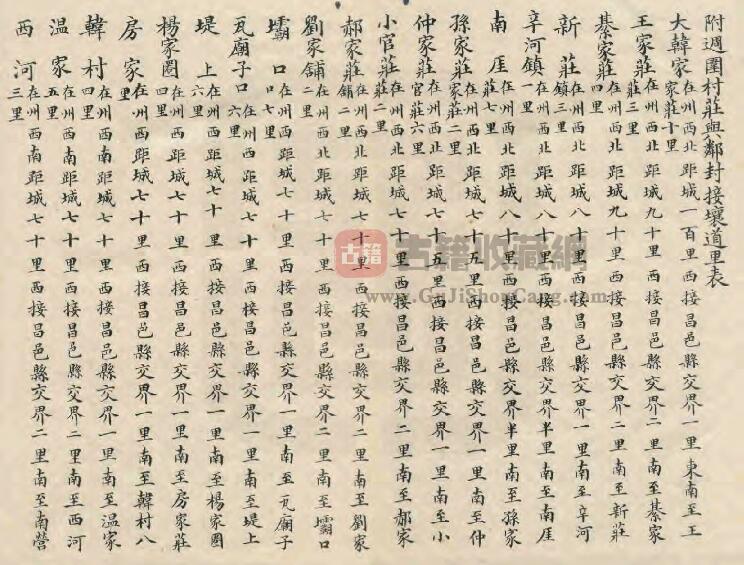 附週圍村莊與鄰封接壤道里表
大韓家在州西北距城一百里西接昌邑縣交界一里東南至王家莊十里
王家莊在州西北距城九十里西接昌邑縣交界二里南至綦家莊三里
綦家莊在州西北距城九十里西接昌邑縣交界二里南至新莊四里
新莊在州西北距城八十里西接昌邑縣交界一里南至辛河鎮三里
辛河鎮在州西北距城八十里西接昌邑縣交界半里南至南厓一里
南厓在州西北距城八十里西接昌邑縣交界半里南至孫家莊七里
孫家莊在州西北距城七十五里西接昌邑縣交界一里南至仲家莊二里
仲家莊在州西北距城七十五里西接昌邑縣交界一里南至小官莊六里
小官莊在州西北距城七十里西接昌邑縣交界二里南至郝家莊二里
郝家莊在州西北距城七十里西接昌邑縣交界二里南至劉家舖二里
劉家舖在州西北距城七十里西接昌邑縣交界二里南至壩口二里
壩口在州西距城七十里西接昌邑縣交界一里南至瓦廟子口七里
瓦廟子口在州西距城七十里西接昌邑縣交界一里南至堤上六里
堤上在州西距城七十里西接昌邑縣交界一里南至楊家圈六里
楊家圈在州西距城七十里西接昌邑縣交界一里南至房家莊四里
房家在州西距城七十里西接昌邑縣交界一里南至韓村八里
韓村在州西南距城七十里西接昌邑縣交界一里南至溫家四里
温家在州西南距城七十里西接昌邑縣交界二里南至西河五里
西河在州西南距城七十里西接昌邑縣交界二里南至南營三里
古籍
古籍收藏網
www.GuJiShouCang.com